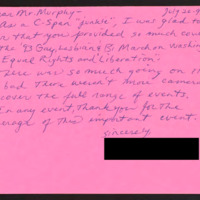 Dear Mr. Murphy- July 20-9
As a C-Span "junkie", I was glad to
that you provided so much cov
the '93 Gay, Lesbian & Bi March on Washing
Equal Rights and Liberation".
There was so much going on
bad there weren't more camera
cover the full range of events.
In any event, thank you for the
coverage of this important event.
Sincerely